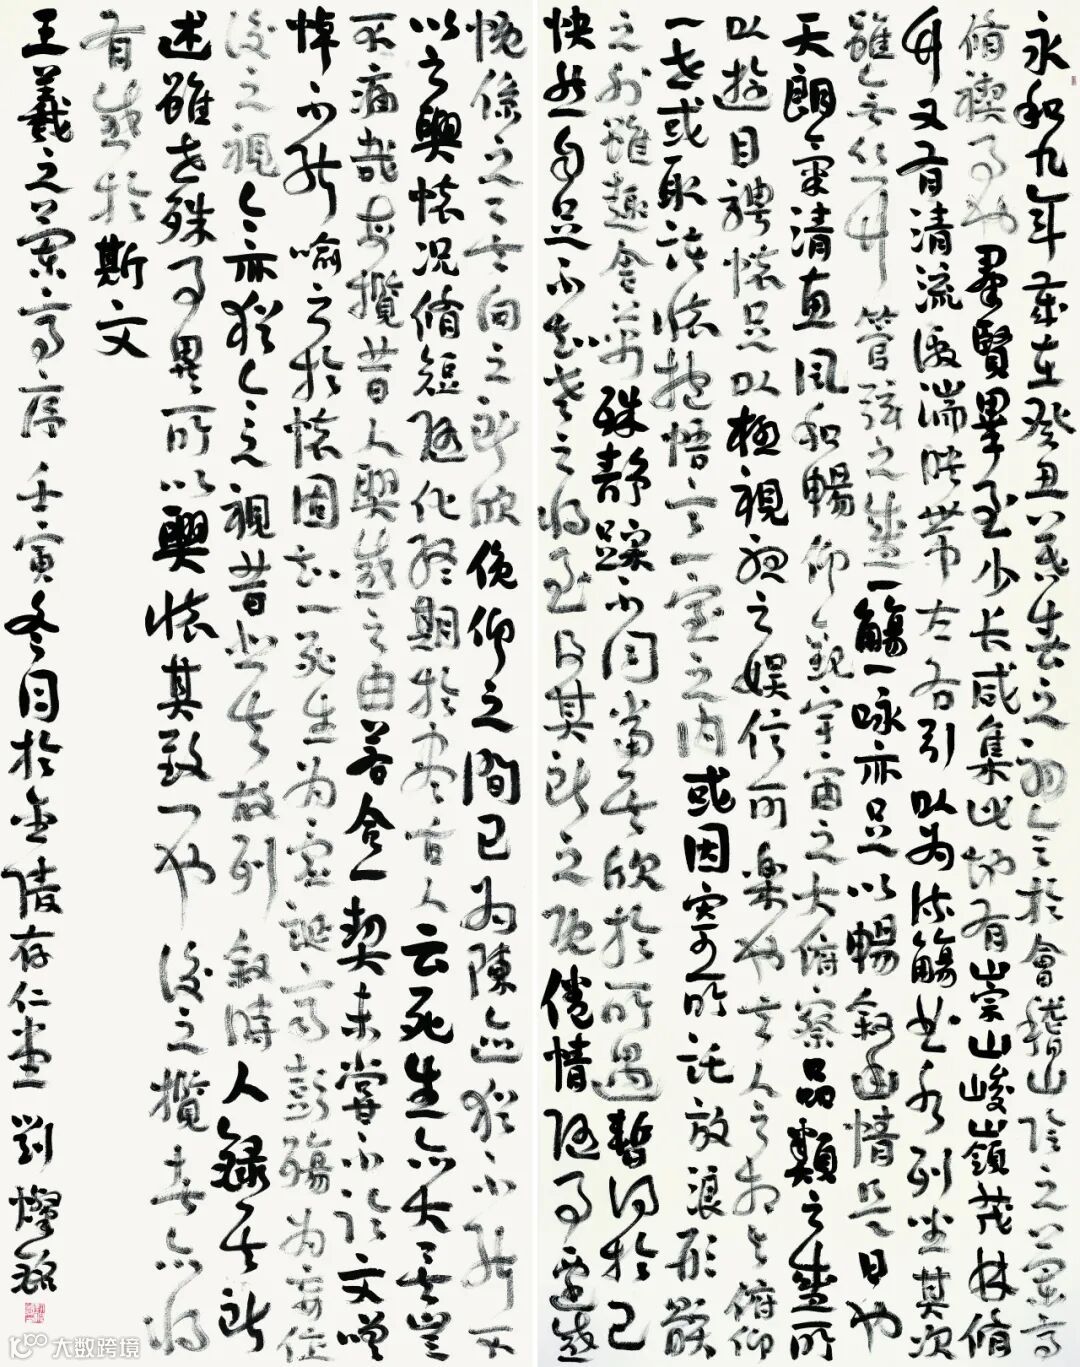 永和九年歲在癸丑暮春之初會於會稽山陰之蘭亭
脩禊事也羣賢畢至少長咸集此地有崇山峻嶺茂林脩
竹又有清流激湍暎帶左右引以為流觴曲水列坐其次
雖無絲竹管弦之盛一觴一詠亦足以暢敘幽情是日也
天朗氣清惠風和暢仰觀宇宙之大俯察品類之盛所
以遊目騁懷足以極視聽之娛信可樂也夫人之相與俯仰
一世或取諸懷抱悟言一室之內或因寄所託放浪形骸
之外雖趣舍萬殊靜躁不同當其欣於所遇暫得於己
快然自足不知老之將至及其所之既倦情隨事遷感
慨係之矣向之所欣俛仰之間已為陳迹猶不能不
以之興懷況脩短隨化終期於盡古人云死生亦大矣豈
不痛哉每攬昔人興感之由若合一契未嘗不臨文嗟
悼不能喻之於懷固知一死生為虛誕齊彭殤為妄作
後之視今亦猶今之視昔悲夫故列敘時人錄其所
述雖世殊事異所以興懷其致一也後之攬者亦將
有感於斯文
王羲之蘭亭序 壬寅冬月於金陵存仁堂 劉燦銘
大数跨境